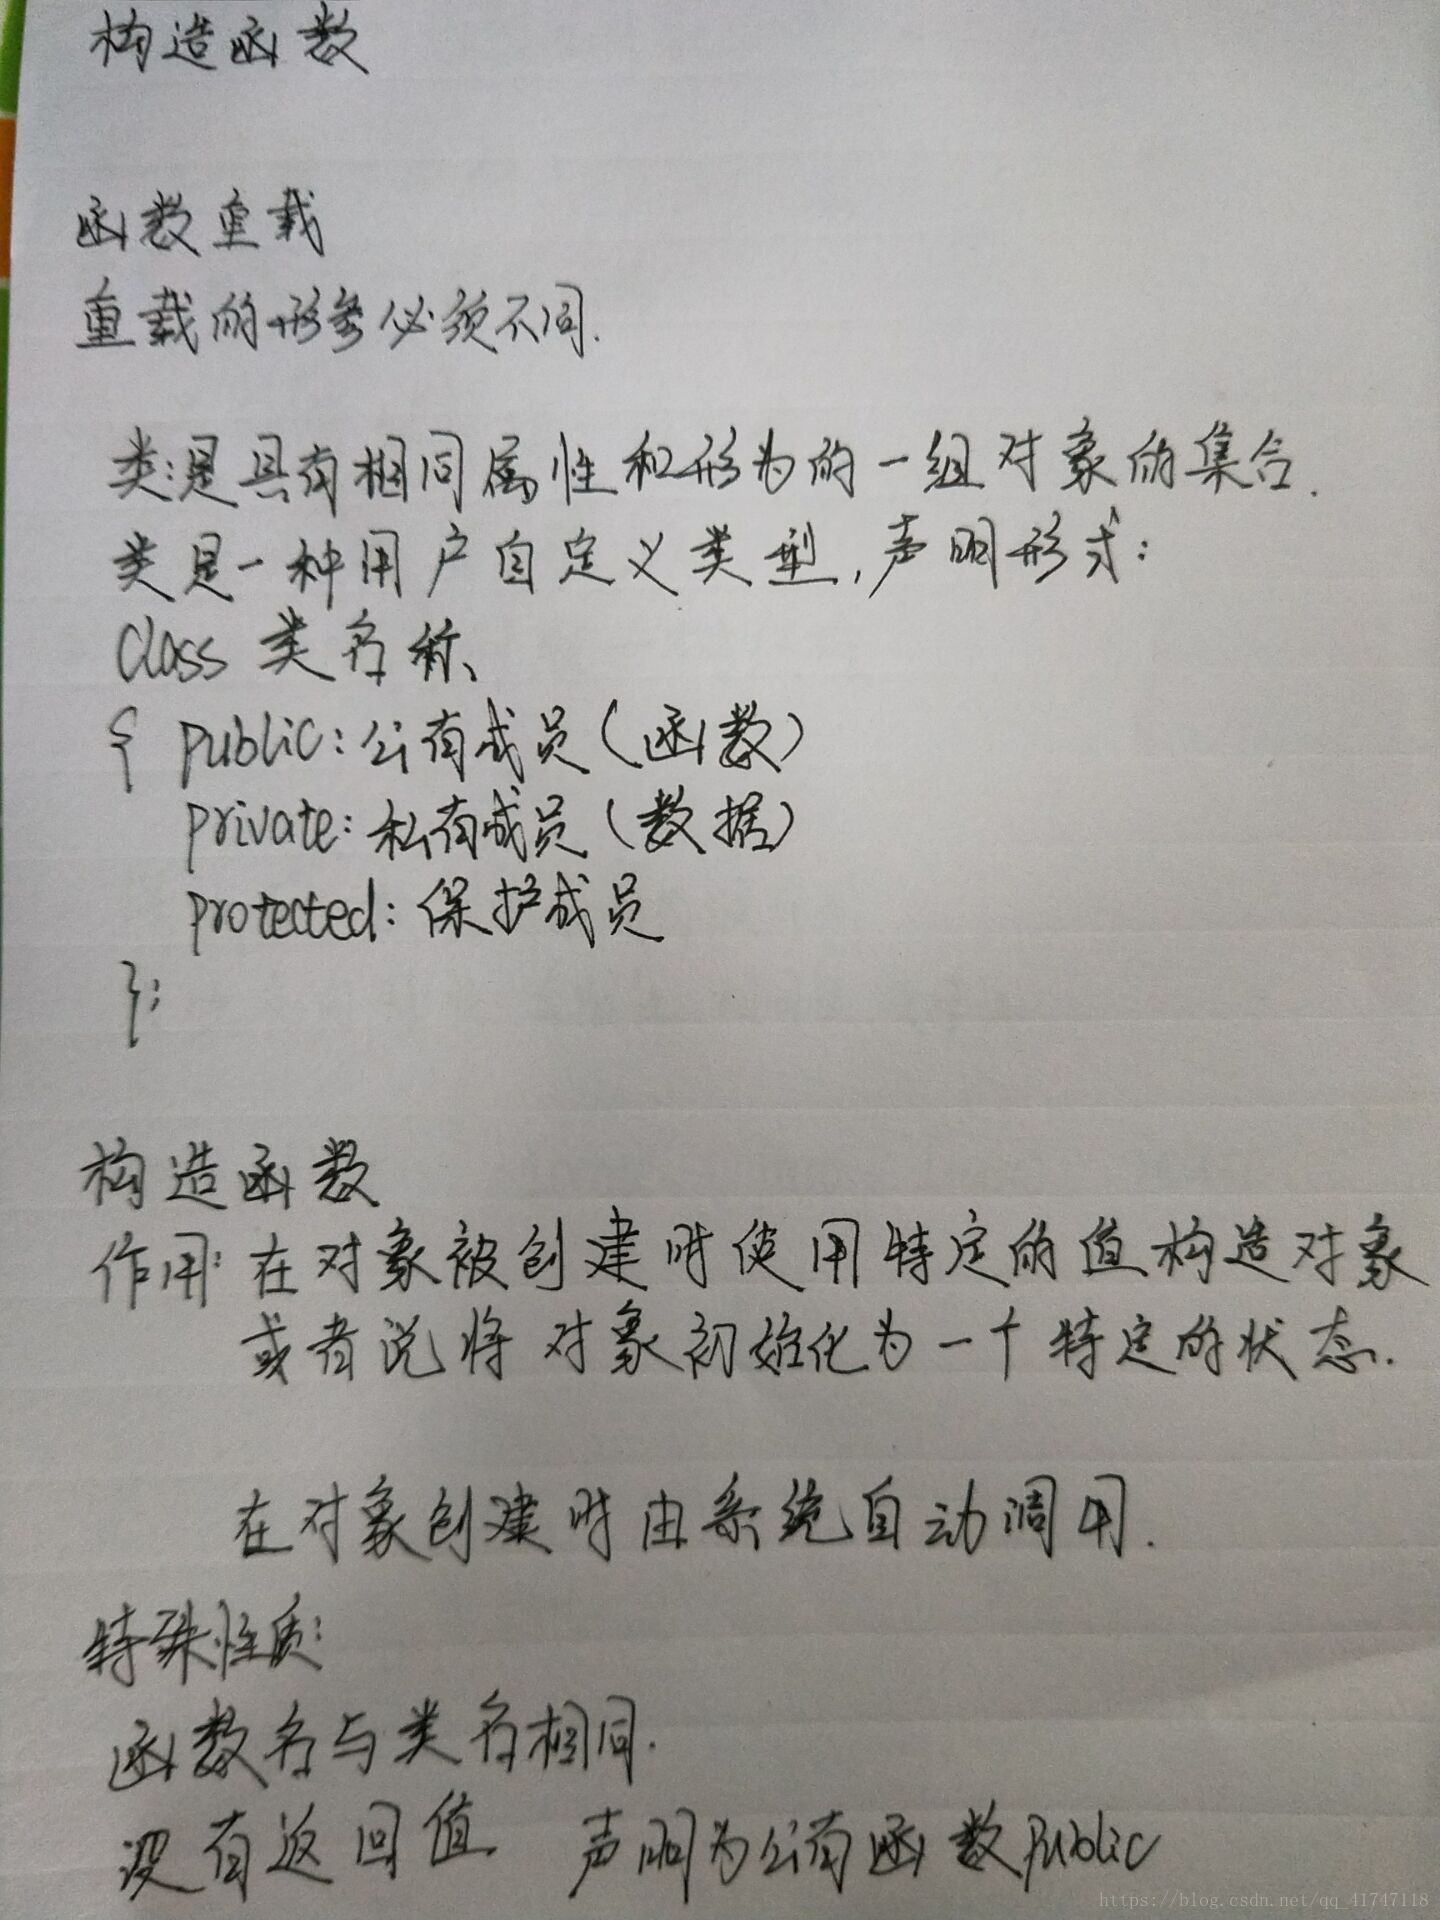 构造函数
函数重载
重载的形参必须不同.
类:是具有相同属性和形为的一组对象的集合.
类是一种用户自定义类型,声明形式:
class 类名称
{ public:公有成员(函数)
private:私有成员(数据)
protected:保护成员
};
构造函数
作用:在对象被创建时使用特定的值构造对象
或者说将对象初始化为一个特定的状态.
在对象创建时由系统自动调用.
特殊性质:
函数名与类名相同.
没有返回值 声明为公有函数public
https://blog.csdn.net/qq_41747118